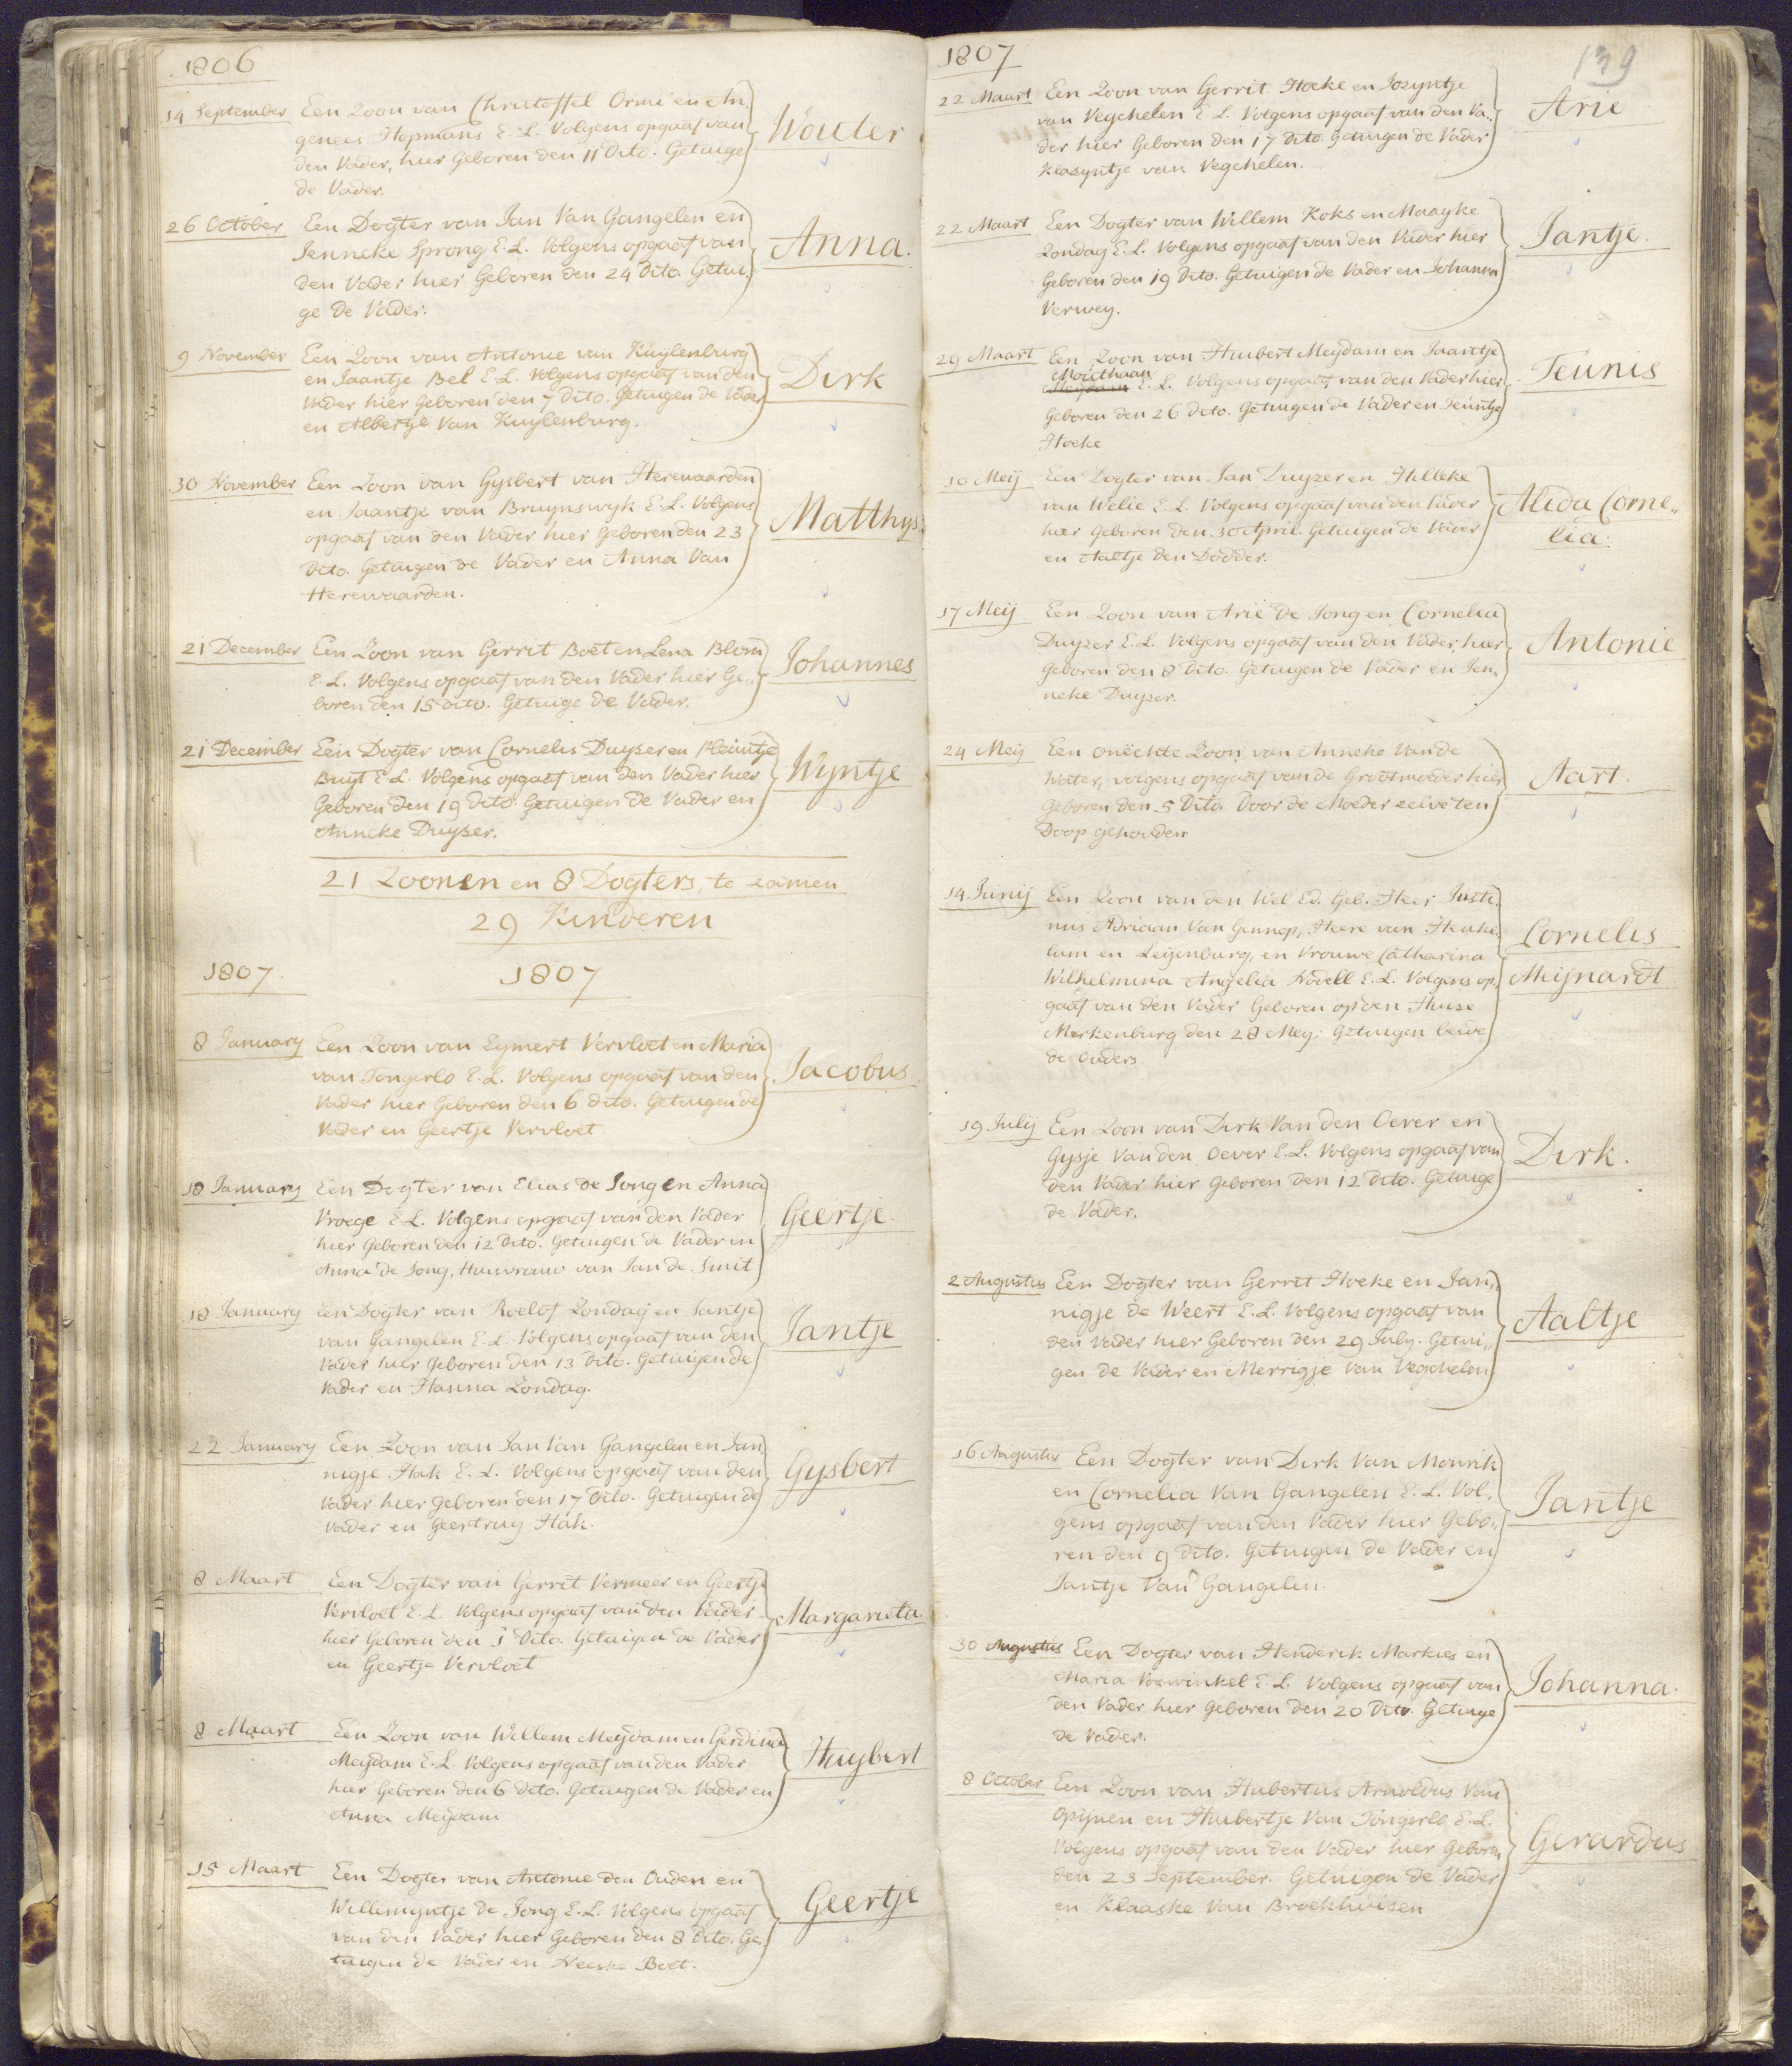 1806
14 September Een Zoon van Christoffel Ormé en An-
genees Hopmans E. L. Volgens opgaaf van
den Vader, hier Geboren den 11 Dito. Getuige
de Vader.
Wouter
26 October Een Dogter van Jan Van Gangelen en
Jenneke Sprong E. L. Volgens opgaaf van
den Vader hier Geboren den 24 Dito. Getui,
ge de Vader.
Anna.
9 November Een Zoon van Antonie van Kuylenburg
en Jaantje Bel E L. Volgens opgaaf van den
Vader hier Geboren den 7 dito. Getuigen de Vader
en Albertje Van Kuylenburg.
Dirk
30 November Een Zoon van Gysbert van Herewaarden
en Jaantje van Bruynswyk E. L. Volgens
opgaaf van den Vader hier Geboren den 23
Dito. Getuigen de Vader en Anna Van
Herewaarden.
Matthys.
21 December Een Zoon van Gerrit Boet en Lena Blom
E. L. Volgens opgaaf van den Vader hier Ge,,
boren den 15 dito. Getuige de Vader.
Johannes
21 December Een Dogter van Cornelis Duyser en Pleuntje
Buyt E L. Volgens opgaaf van den Vader hier
Geboren den 19 Dito. Getuigen de Vader en
Anneke Duyser.
Wyntje
21 Zoonen en 8 Dogters, te samen
29 Kinderen
1807. 1807
8 January Een Zoon van Eymert Vervloet en Maria
van Tongerlo E. L. Volgens opgaaf van den
Vader hier Geboren den 6 dito. Getuigen de
Vader en Geertje Vervloet
Jacobus
18 January Een Dogter van Elias de Jong en Anna
Vroege E L. Volgens opgaaf van den Vader
hier Geboren den 12 Dito. Getuigen de Vader en
Anna de Jong, Huisvrouw van Jan de Smit
Geertje.
18 January Een Dogter van Roelof Zondag en Jantje
van Gangelen E. L Volgens opgaaf van den
Vader hier Geboren den 13 Dito. Getuigen de
Vader en Hanna Zondag.
Jantje
22 January Een Zoon van Jan Van Gangelen en Jan,
nigje Hak E. L. Volgens opgaaf van den
Vader hier Geboren den 17 Dito. Getuigen de
Vader en Geertruy Hak.
Gysbert
8 Maart Een Dogter van Gerrit Vermeer en Geertje
Vervloet E. L. Volgens opgaaf van den Vader
hier Geboren den 1 Dito. Getuigen de Vader
en Geertje Vervloet
Margarieta.
8 Maart Een Zoon van Willem Meydam en Gerdina
Meydam E. L. Volgens opgaaf van den Vader
hier Geboren den 6 dito. Getuigen de Vader en
Anna Meydam
Huybert
15 Maart Een Dogter van Antonie den Ouden en
Willemyntje de Jong E. L. Volgens opgaaf
van den Vader hier Geboren den 8 Dito. Ge,
tuigen de Vader en Neeske Boet.
Geertje
1807
139
22 Maart Een Zoon van Gerrit Hoeke en Josyntje
van Vegchelen E L. Volgens opgaaf van den Va,,
der hier Geboren den 17 Dito. Getuigen de Vader
Klasyntje van Vegchelen.
Arie
22 Maart Een Dogter van Willem Koks en Maayke
Zondag E. L. Volgens opgaaf van den Vader hier
Geboren den 19 Dito. Getuigen de Vader en Johanna
Verwey.
Jantje.
29 Maart Een Zoon van Huibert Meydam en Jaantje
Mouthaan
Meydam E. L. Volgens opgaaf van den Vader hier
Geboren den 26 dito. Getuigen de Vader en Teuntje
Hoeke
Teunis
10 Meij Een Dogter van Jan Duyzer en Hilleke
van Welie E. L. Volgens opgaaf van den Vader
hier Geboren den 30 April. Getuigen de Vader
en Aaltje den Dodder.
Alida Corne,,
lia.
17 Meij Een Zoon van Arie de Jong en Cornelia
Duyzer E. L. Volgens opgaaf van den Vader, hier
Geboren den 8 Dito. Getuigen de Vader en Jen,,
neke Duyser.
Antonie
24 Meij Een onëchte Zoon van Anneke Van de
Water, volgens opgaaf van de Grootmoeder hier
Geboren den 5 Dito. Door de Moeder zelve ten
Doop gehouden
Aart.
14 Junij Een Zoon van den Wel Ed. Geb. Heer Justi,
nus Adriaan Van Gennep, Heere van Heuke,
lum en Leyenburg, en Vrouwe Catharina
Wilhelmina Angelia Nodell E. L. Volgens op,
gaaf van den Vader Geboren op den Huise
Merkenburg den 28 Mey. Getuigen beide
de Ouders.
Cornelis
Meijnardt
19 July Een Zoon van Dirk Van den Oever en
Gysje Van den Oever E. L. Volgens opgaaf van
den Vader hier Geboren den 12 Dito. Getuige
de Vader.
Dirk.
2 Augustus Een Dogter van Gerrit Hoeke en Jan,,
nigje de Weert E. L. Volgens opgaaf van
den Vader hier Geboren den 29 July. Getui,,
gen de Vader en Merrigje Van Vegchelen
Aaltje
16 Augustus Een Dogter van Dirk Van Mourik
en Cornelia Van Gangelen E. L. Vol,
gens opgaaf van den Vader hier Gebo,,
ren den 9 Dito. Getuigen de Vader en
Jantje Van Gangelen.
Jantje
30 Augustus Een Dogter van Henderik Markies en
Maria Voswinkel E. L. Volgens opgaaf van
den Vader hier Geboren den 20 Dito. Getuige
de Vader.
Johanna.
8 October Een Zoon van Hubertus Arnoldus Van
Opijnen en Huibertje Van Tongerlo E. L.
Volgens opgaaf van den Vader hier Geboren
den 23 September. Getuigen de Vader
en Klaaske Van Broekhuisen
Gerardus